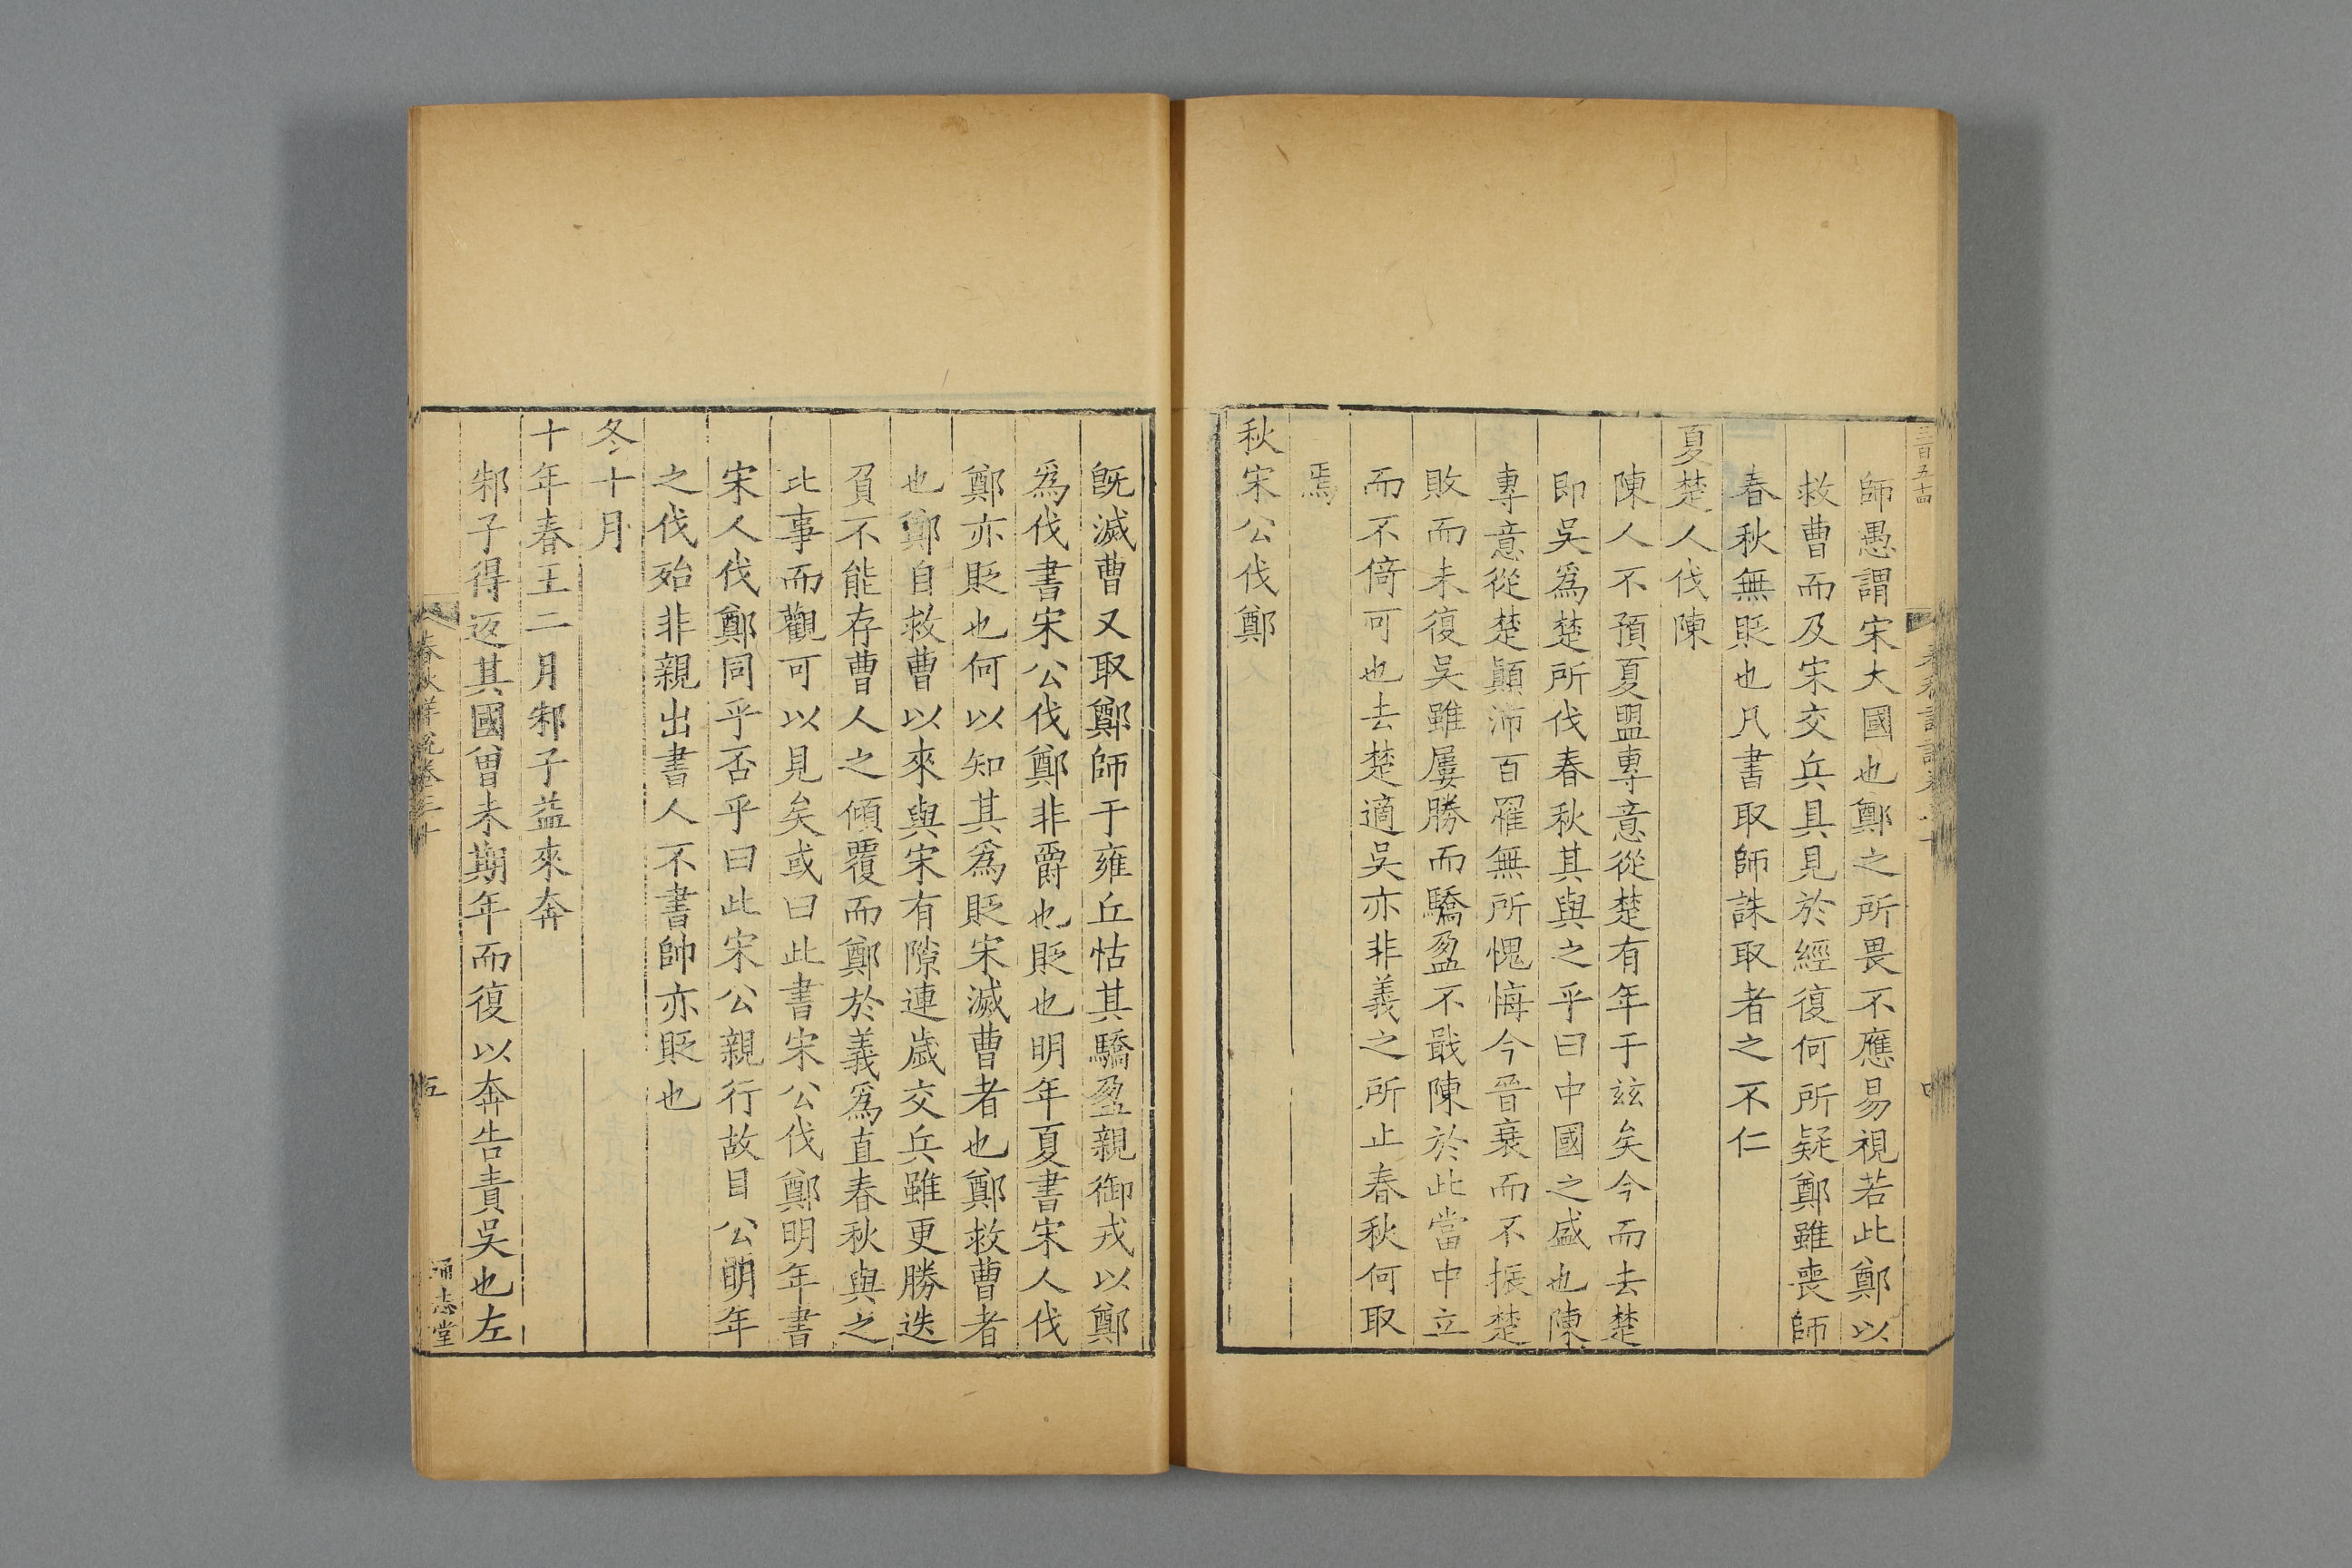 三百五十四
師愚謂宋大國也鄭之所畏不應易視若此鄭以
救曹而及宋交兵具見於經復何所疑鄭雖喪師
春秋無貶也凡書取師誅取者之不仁
夏楚人伐陳
陳人不預夏盟專意從楚有年于玆矣今而去楚
即吳爲楚所伐春秋其與之乎曰中國之盛也陳
專意從楚顚沛百罹無所愧悔今晉衰而不振楚
敗而未復吳雖屢勝而驕盈不戢陳於此當中立
而不倚可也去楚適吳亦非義之所止春秋何取
焉
秋宋公伐鄭
旣滅曹又取鄭師于雍丘怙其驕盈親御戎以鄭
爲伐書宋公伐鄭非爵也貶也明年夏書宋人伐
鄭亦貶也何以知其爲貶宋滅曹者也鄭救曹者
也鄭自救曹以來與宋有隙連歲交兵雖更勝迭
負不能存曹人之傾覆而鄭於義爲直春秋與之
此事而觀可以見矣或曰此書宋公伐鄭明年書
宋人伐鄭同乎否乎曰此宋公親行故目公明年
之伐殆非親出書人不書帥亦貶也
冬十月
十年春王二月邾子益來奔
邾子得返其國曾未期年而復以奔告責吳也左
春秋詳說卷三十
五
通志堂